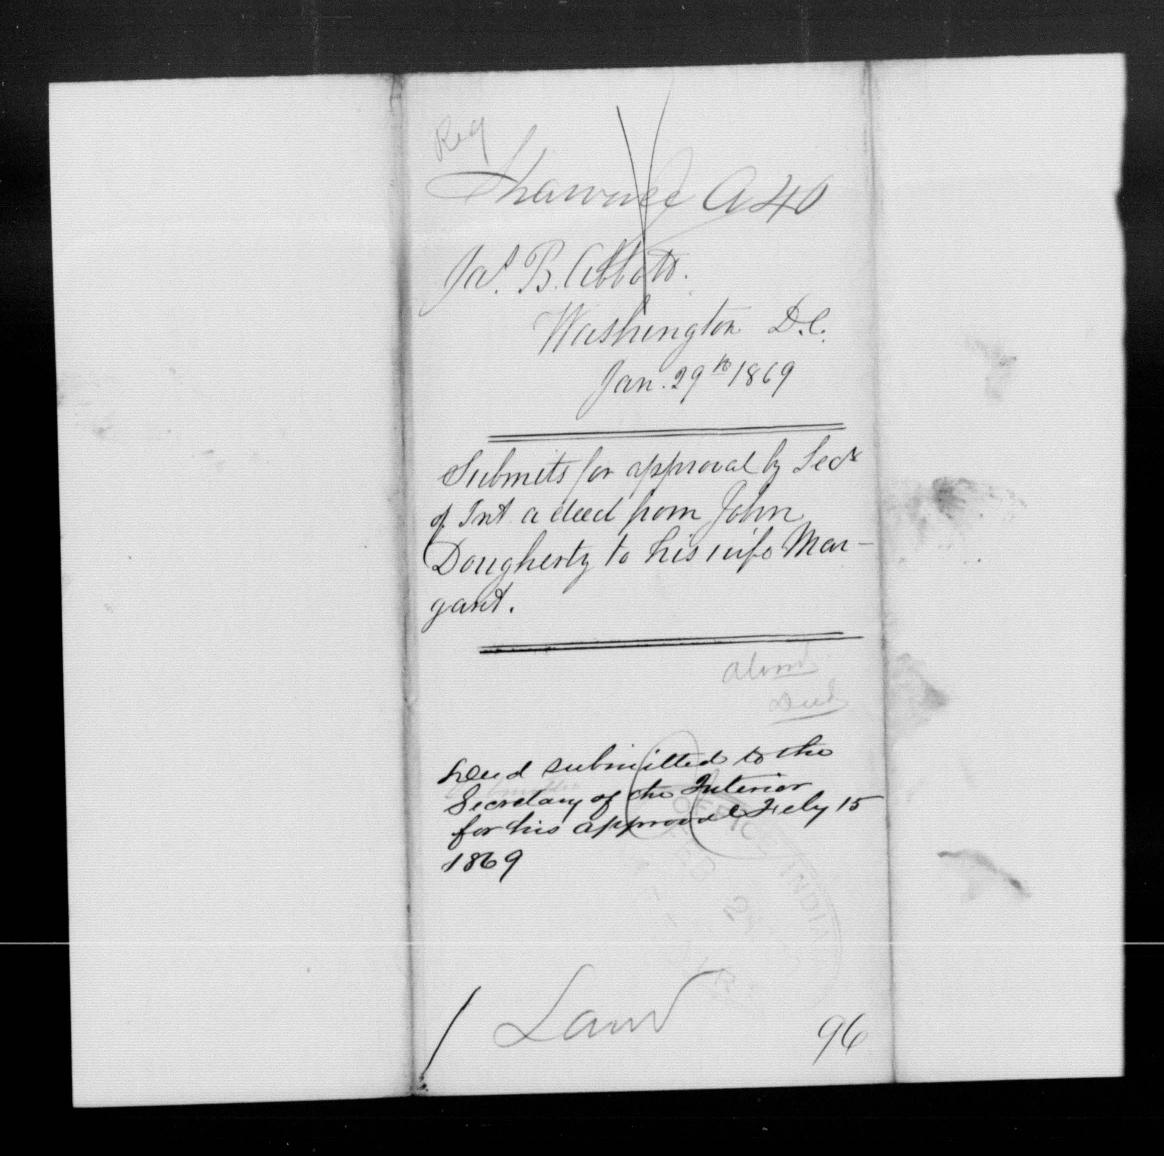 Reg
Shawnee A 40
Jas. B. Abbott.
Washington D.C.
Jan. 29th 1869
Submits for approval by Secy
of Int a deed from John
Dougherty to his wife Mar-
garet.
Deed
Deed submitted to the
Secretary of the Interior
for his approval Feby 15
1869
OFFICE INDIA
FEB
Land
96